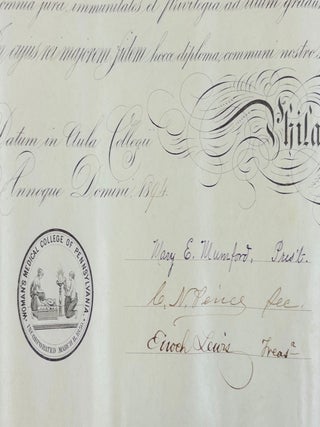 omnia jura, immunitates et privilegia ad illum gradum
cujus rei majorem fidem hocce diploma, communi nostro
Datum in Aula Collegii
Phila
Annoque Domini, 1894.
WOMAN'S MEDICAL COLLEGE OF PENNSYLVANIA.
INCORPORATED MARCH 11, 1850.
Mary E. Mumford, Pres't.
C. N. Peirce Sec.
Enoch Lewis Treasr